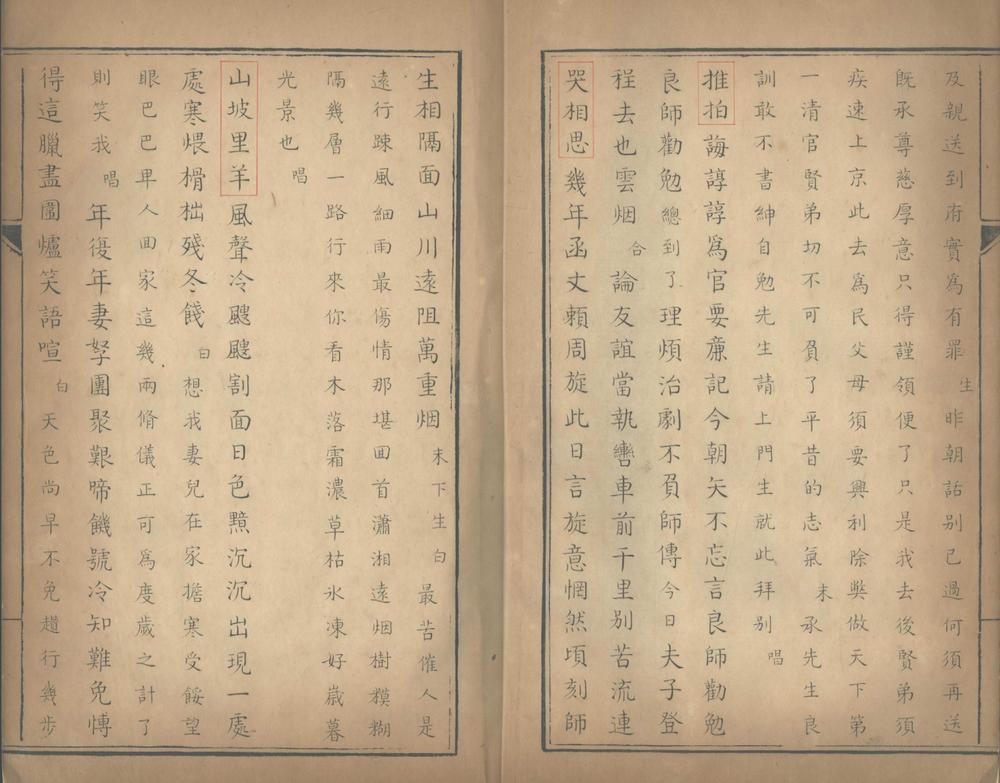 及親送到府實為有罪生昨朝話別已過何須再送
既承尊慈厚意只得謹領便了只是我去後賢弟須
疾速上京此去為民父母須要興利除獘做天下第
一清官賢弟切不可負了平昔的志氣末承先生良
訓敢不書紳自勉先生請上門生就此拜別唱
推拍誨諄諄為官要亷記今朝矢不忘言良師勸勉
良師勸勉總到了理煩治劇不負師傳今日夫子登
程去也雲烟合論友誼當執轡車前千里別苦流連
哭相思幾年函丈頼周旋此日言旋意惘然頃刻師
生相隔面山川遠阻萬重烟末下生白最苦催人是
遠行踈風細雨最傷情那堪囬首瀟湘遠烟樹糢糊
隔幾層一路行來你看木落霜濃草枯氷凍好歲暮
光景也唱
山坡里羊風聲冷颼颼割面日色黯沉沉出現一處
處寒煨榾柮殘冬餞白想我妻兒在家擔寒受餒望
眼巴巴早人囬家這幾兩脩儀正可為度歲之計了
則笑我唱年復年妻孥團聚艱啼饑號冷知難免慱
得這臘盡圍爐笑語喧白天色尚早不免趲行幾步